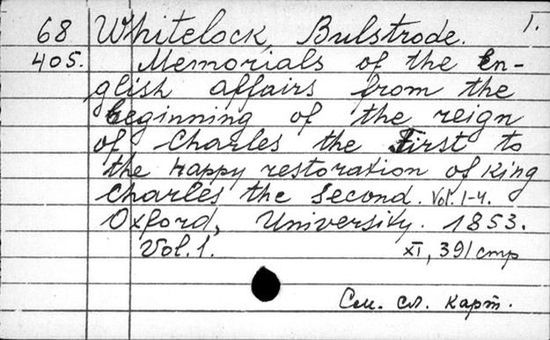 68 Whitelock, Bulstrode. 1.
405. Memorials of the En-
glish affairs from the
beginning of the reign
of Charles the First to
the happy restoration of King
Charles the Second. Vol. 1-4.
Oxford, University. 1853.
Vol. 1. XI, 391 стр
См. сл. карт.